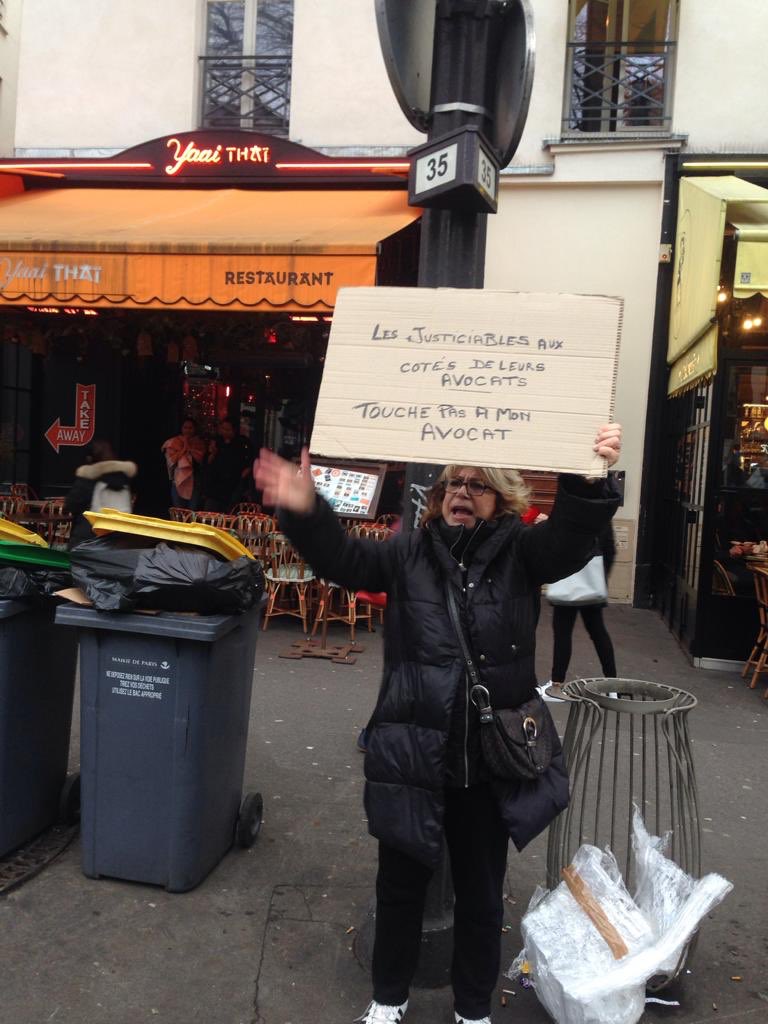 Yaai THAÏ
35
35
Yaai THAÏ
RESTAURANT
LES JUSTICIABLES AUX
COTÉS DE LEURS
AVOCATS
TOUCHE PAS A MON
AVOCAT
TAKE
AWAY
MAIRIE DE PARIS
NE DEPOSEZ RIEN SUR LA VOIE PUBLIQUE
TRIEZ VOS DÉCHETS
UTILISEZ LE BAC APPROPRIE